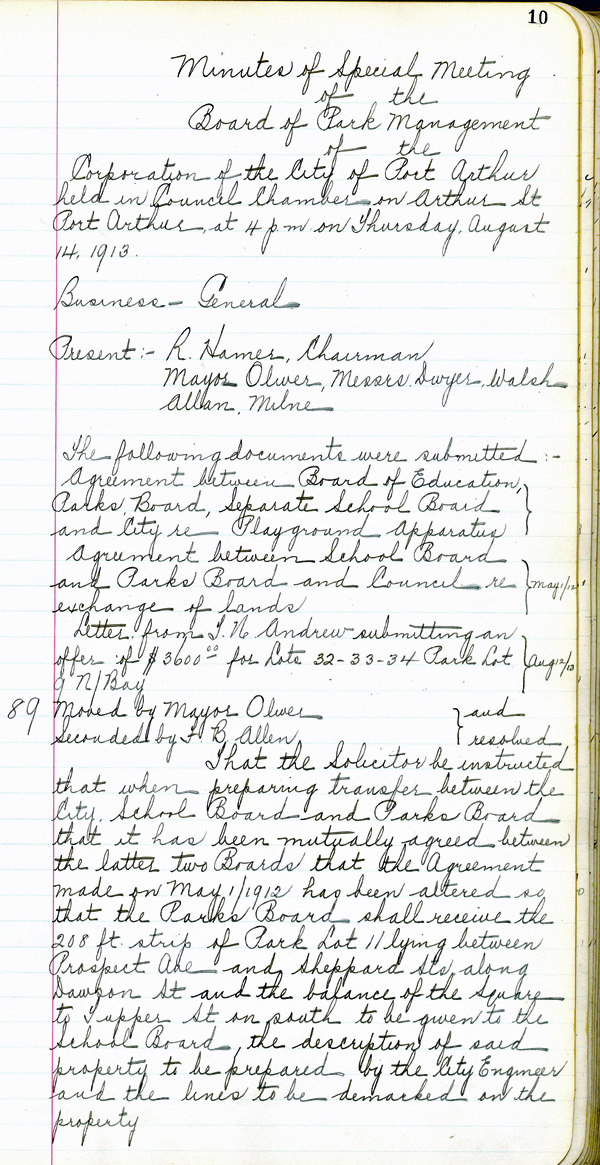 10
Minutes of Special Meeting
of the
Board of Park Management
of the
Corporation of the City of Port Arthur
held in Council Chamber on Arthur St
Port Arthur, at 4 p.m. on Thursday, August
14, 1913.
Business - General
Present:- R. Hamer, Chairman
Mayor Oliver, Messrs. Dwyer, Walsh
Allan, Milne
The following documents were submitted :-
Agreement between Board of Education,
Parks Board, Separate School Board
and City re Playground Apparatus
Agreement between School Board
and Parks Board and Council re May 1/12
exchange of lands
Letter from T. N. Andrew submitting an
offer of $3600.00 for Lots 32-33-34 Park Lot Aug 12/13
9 N/Bay
89 Moved by Mayor Oliver and
Seconded by F. B. Allen resolved
That the Solicitor be instructed
that when preparing transfer between the
City, School Board and Parks Board
that it has been mutually agreed between
the latter two Boards that the Agreement
made on May 1/1912 has been altered so
that the Parks Board shall receive the
208 ft. strip of Park Lot 11 lying between
Prospect Ave and Sheppard Sts, along
Dawson St and the balance of the square
to Tupper St on south to be given to the
School Board, the description of said
property to be prepared by the City Engineer
and the lines to be demarked on the
property